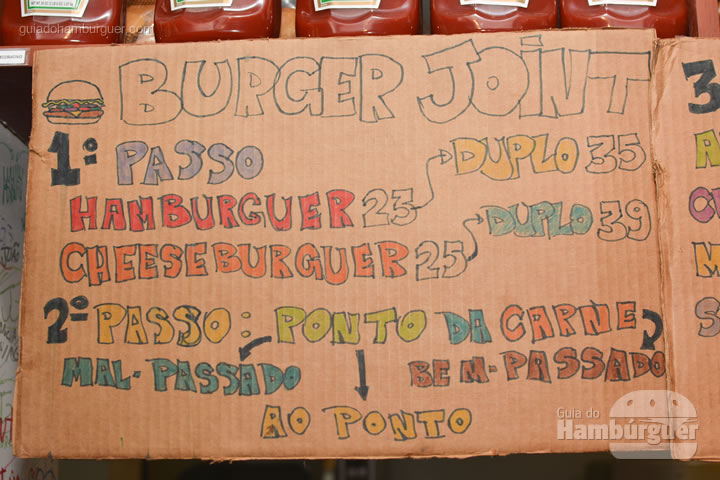 guiadohamburguer.com
BURGER JOINT
1º PASSO
DUPLO 35
HAMBURGUER 23
DUPLO 39
CHEESEBURGUER 25
2º PASSO: PONTO DA CARNE
MAL-PASSADO
BEM-PASSADO
AO PONTO
3
Guia do
Hambúrguer